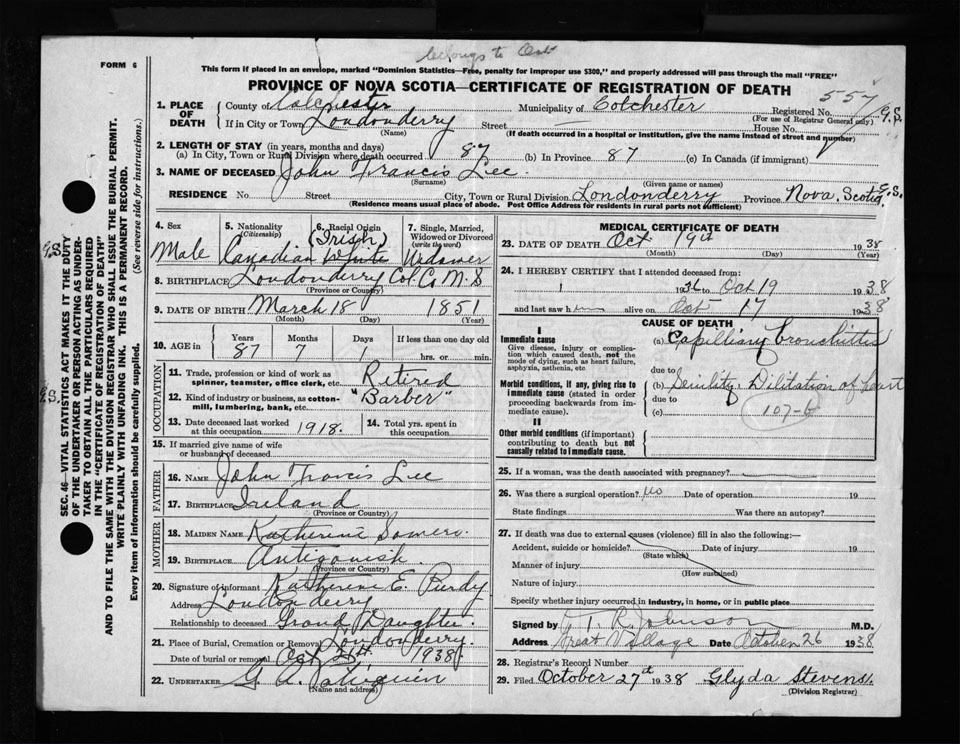 belongs to Oct
FORM 6
This form if placed in an envelope, marked "Dominion Statistics—Free, penalty for improper use $300," and properly addressed will pass through the mail "FREE"
PROVINCE OF NOVA SCOTIA—CERTIFICATE OF REGISTRATION OF DEATH
557
1. PLACE OF DEATH County of Colchester Municipality of Colchester Registered No. G.S.
(For use of Registrar General only)
If in City or Town Londonderry Street — House No.
(Name) (If death occurred in a hospital or institution, give the name instead of street and number)
2. LENGTH OF STAY (in years, months and days)
(a) In City, Town or Rural Division where death occurred 87 (b) In Province 87 (c) In Canada (if immigrant)
3. NAME OF DECEASED John Francis Lee.
(Surname) (Given name or names)
RESIDENCE No Street City, Town or Rural Division Londonderry Province Nova Scotia G.S.
(Residence means usual place of abode. Post Office Address for residents in rural parts not sufficient)
4. Sex 5. Nationality (Citizenship) 6. Racial Origin 7. Single, Married, Widowed or Divorced (write the word)
(Irish)
Male Canadian White Widower
8. BIRTHPLACE Londonderry Col. Co N S
(Province or Country)
9. DATE OF BIRTH March 18 1851
(Month) (Day) (Year)
10. AGE in Years Months Days If less than one day old
87 7 1 hrs. or min.
OCCUPATION
11. Trade, profession or kind of work as spinner, teamster, office clerk, etc. Retired
12. Kind of industry or business, as cotton-mill, lumbering, bank, etc. "Barber"
13. Date deceased last worked at this occupation 1918. 14. Total yrs. spent in this occupation
15. If married give name of wife or husband of deceased
FATHER
16. NAME John Francis Lee
17. BIRTHPLACE Ireland
(Province or Country)
MOTHER
18. MAIDEN NAME Katherine Somers.
19. BIRTHPLACE Antigonish.
(Province or Country)
20. Signature of informant Katherine E. Purdy
Address Londonderry
Relationship to deceased Grand Daughter.
21. Place of Burial, Cremation or Removal Londonderry.
Date of burial or removal Oct 1938
22. UNDERTAKER G. A.
(Name and address)
MEDICAL CERTIFICATE OF DEATH
23. DATE OF DEATH Oct 19th 1938
(Month) (Day) (Year)
24. I HEREBY CERTIFY that I attended deceased from:
193 to Oct 19 1938
and last saw h alive on Oct 17 1938
CAUSE OF DEATH
I
Immediate cause
Give disease, injury or complication which caused death, not the mode of dying, such as heart failure, asphyxia, asthenia, etc
(a) Capilliary bronchittis
due to
Morbid conditions, if any, giving rise to immediate cause (stated in order proceeding backwards from immediate cause).
(b) Senility. Dilitation of heart
due to
(c) 107-
II
Other morbid conditions (if important) contributing to death but not causally related to immediate cause.
25. If a woman, was the death associated with pregnancy?
26. Was there a surgical operation? no Date of operation 19
State findings Was there an autopsy?
27. If death was due to external causes (violence) fill in also the following:—
Accident, suicide or homicide? Date of injury 19
(State which)
Manner of injury
(How sustained)
Nature of injury
Specify whether injury occurred in industry, in home, or in public place
Signed by T. R. Johnson M.D.
Address Great Village Date October 26 1938
28. Registrar's Record Number
29. Filed October 27th 1938 Glyda Stevens.
(Division Registrar)
G.S.
G.S.
SEC. 46—VITAL STATISTICS ACT MAKES IT THE DUTY
OF THE UNDERTAKER OR PERSON ACTING AS UNDER-
TAKER TO OBTAIN ALL THE PARTICULARS REQUIRED
IN THE "CERTIFICATE OF REGISTRATION OF DEATH"
AND TO FILE THE SAME WITH THE DIVISION REGISTRAR WHO SHALL ISSUE THE BURIAL PERMIT.
WRITE PLAINLY WITH UNFADING INK. THIS IS A PERMANENT RECORD.
Every item of information should be carefully supplied. (See reverse side for instructions.)